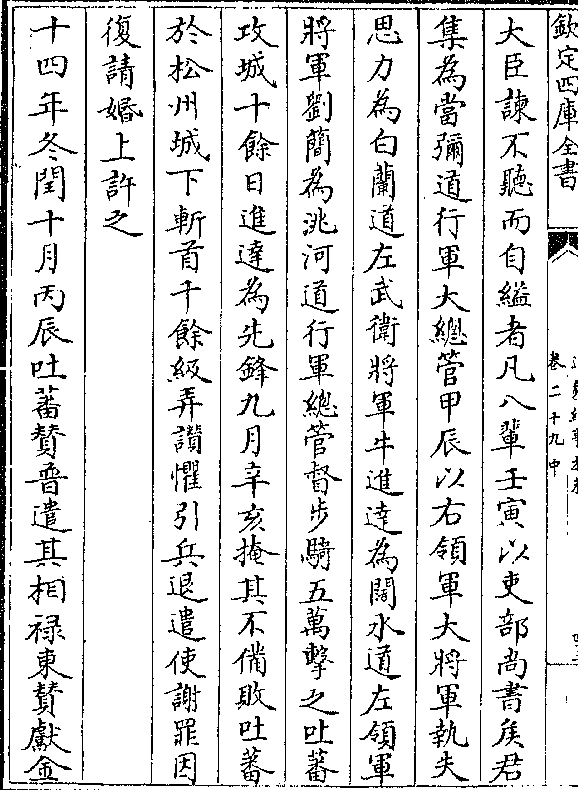 欽定四庫全書
卷二十九中
大臣諫不聽而自縊者凡八輩壬寅以吏部尚書侯君
集為當彌道行軍大總管甲辰以右領軍大將軍執失
思力為白蘭道左武衛將軍牛進達為闊水道左領軍
將軍劉簡為洮河道行軍總管督步騎五萬擊之吐蕃
攻城十餘日進達為先鋒九月辛亥掩其不備敗吐蕃
於松州城下斬首千餘級弄讚懼引兵退遣使謝罪因
復請婚上許之
十四年冬閏十月丙辰吐蕃贊普遣其相祿東贊獻金